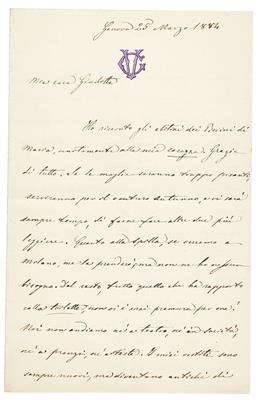 Genova 25 Marzo 1884
GV
Mia cara Giuditta
Ho ricevuto gli abitini dei Bimbi di
Maria, unitamente alla mia Grazie
di tutto. Se le maglie saranno troppo pesanti,
serviranno per il venturo autunno, e vi sarà
sempre tempo, di farne fare altre due più
leggiere. Quanto alla spilla, se verremo a
Milano, me la prenderò; ma non ne ho nessun
bisogno. Del resto, tutto quello che ha rapporto
colla toeletta, non vi è mai premura per me!
Noi non andiamo nè a teatro, nè in società,
nè a pranzi, nè a feste. I miei vestiti sono
sempre nuovi, ma diventano antichi di